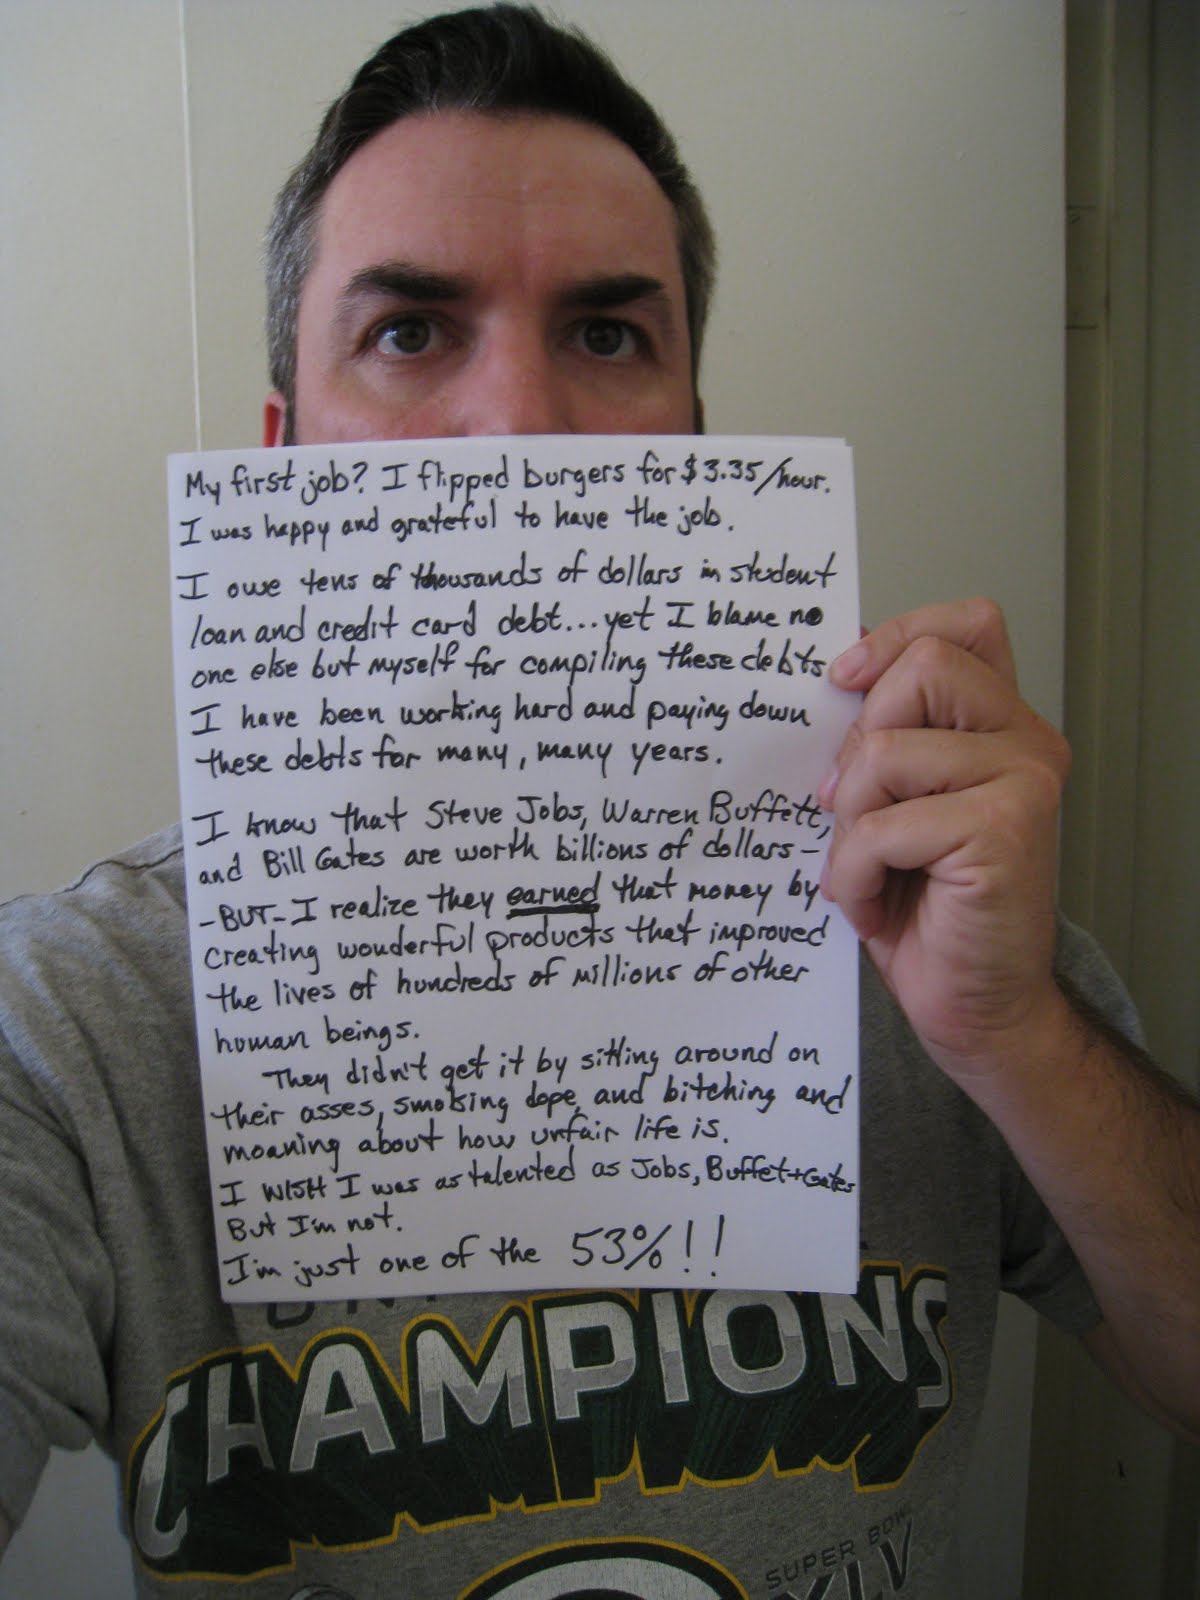 My first job? I flipped burgers for $3.35/hour.
I was happy and grateful to have the job.
I owe tens of thousands of dollars in student
loan and credit card debt...yet I blame no
one else but myself for compiling these debts
I have been working hard and paying down
these debts for many, many years.
I know that Steve Jobs, Warren Buffett,
and Bill Gates are worth billions of dollars-
-BUT- I realize they earned that money by
creating wonderful products that improved
the lives of hundreds of millions of other
human beings.
They didn't get it by sitting around on
their asses, smoking dope, and bitching and
moaning about how unfair life is.
I WISH I was as talented as Jobs, Buffet+Gates
But I'm not.
I'm just one of the 53%!!
CHAMPIONS
SUPER BOWL
XLV